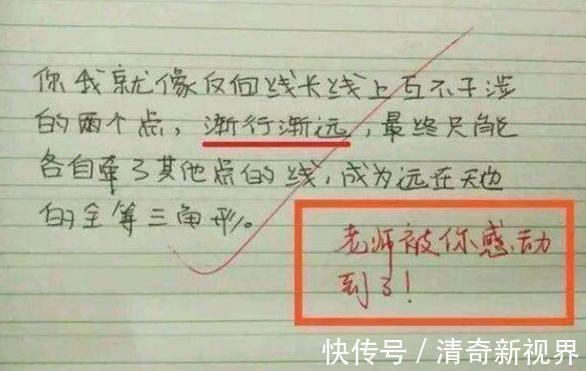 你我就像反向线长线上互不干涉
的两个点，渐行渐远，最终只能
各自牵了其他点的线，成为远在天边
的全等三角形。
老师被你感动
到了！
快传号／清奇新视界